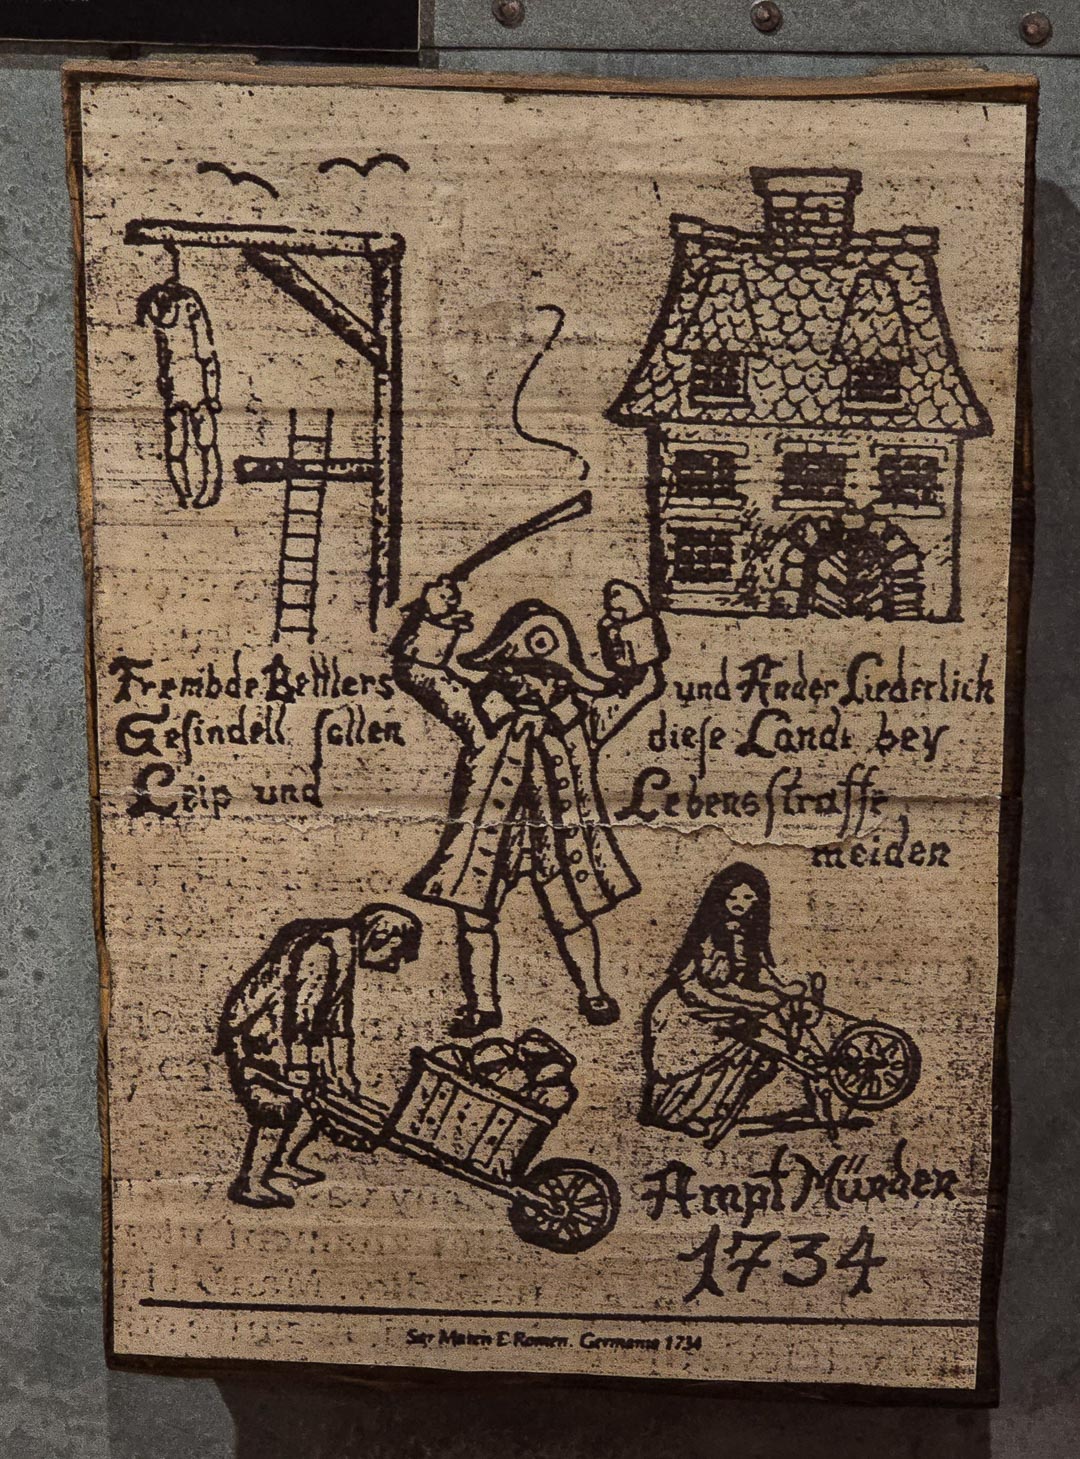 Frembde Bettlers und Ander Liederlich
Gesindell sollen diese Landt bey
Leip und Lebensstraffe
meiden
Ampt Münden
1734
Maten E Romen. Germania 1734